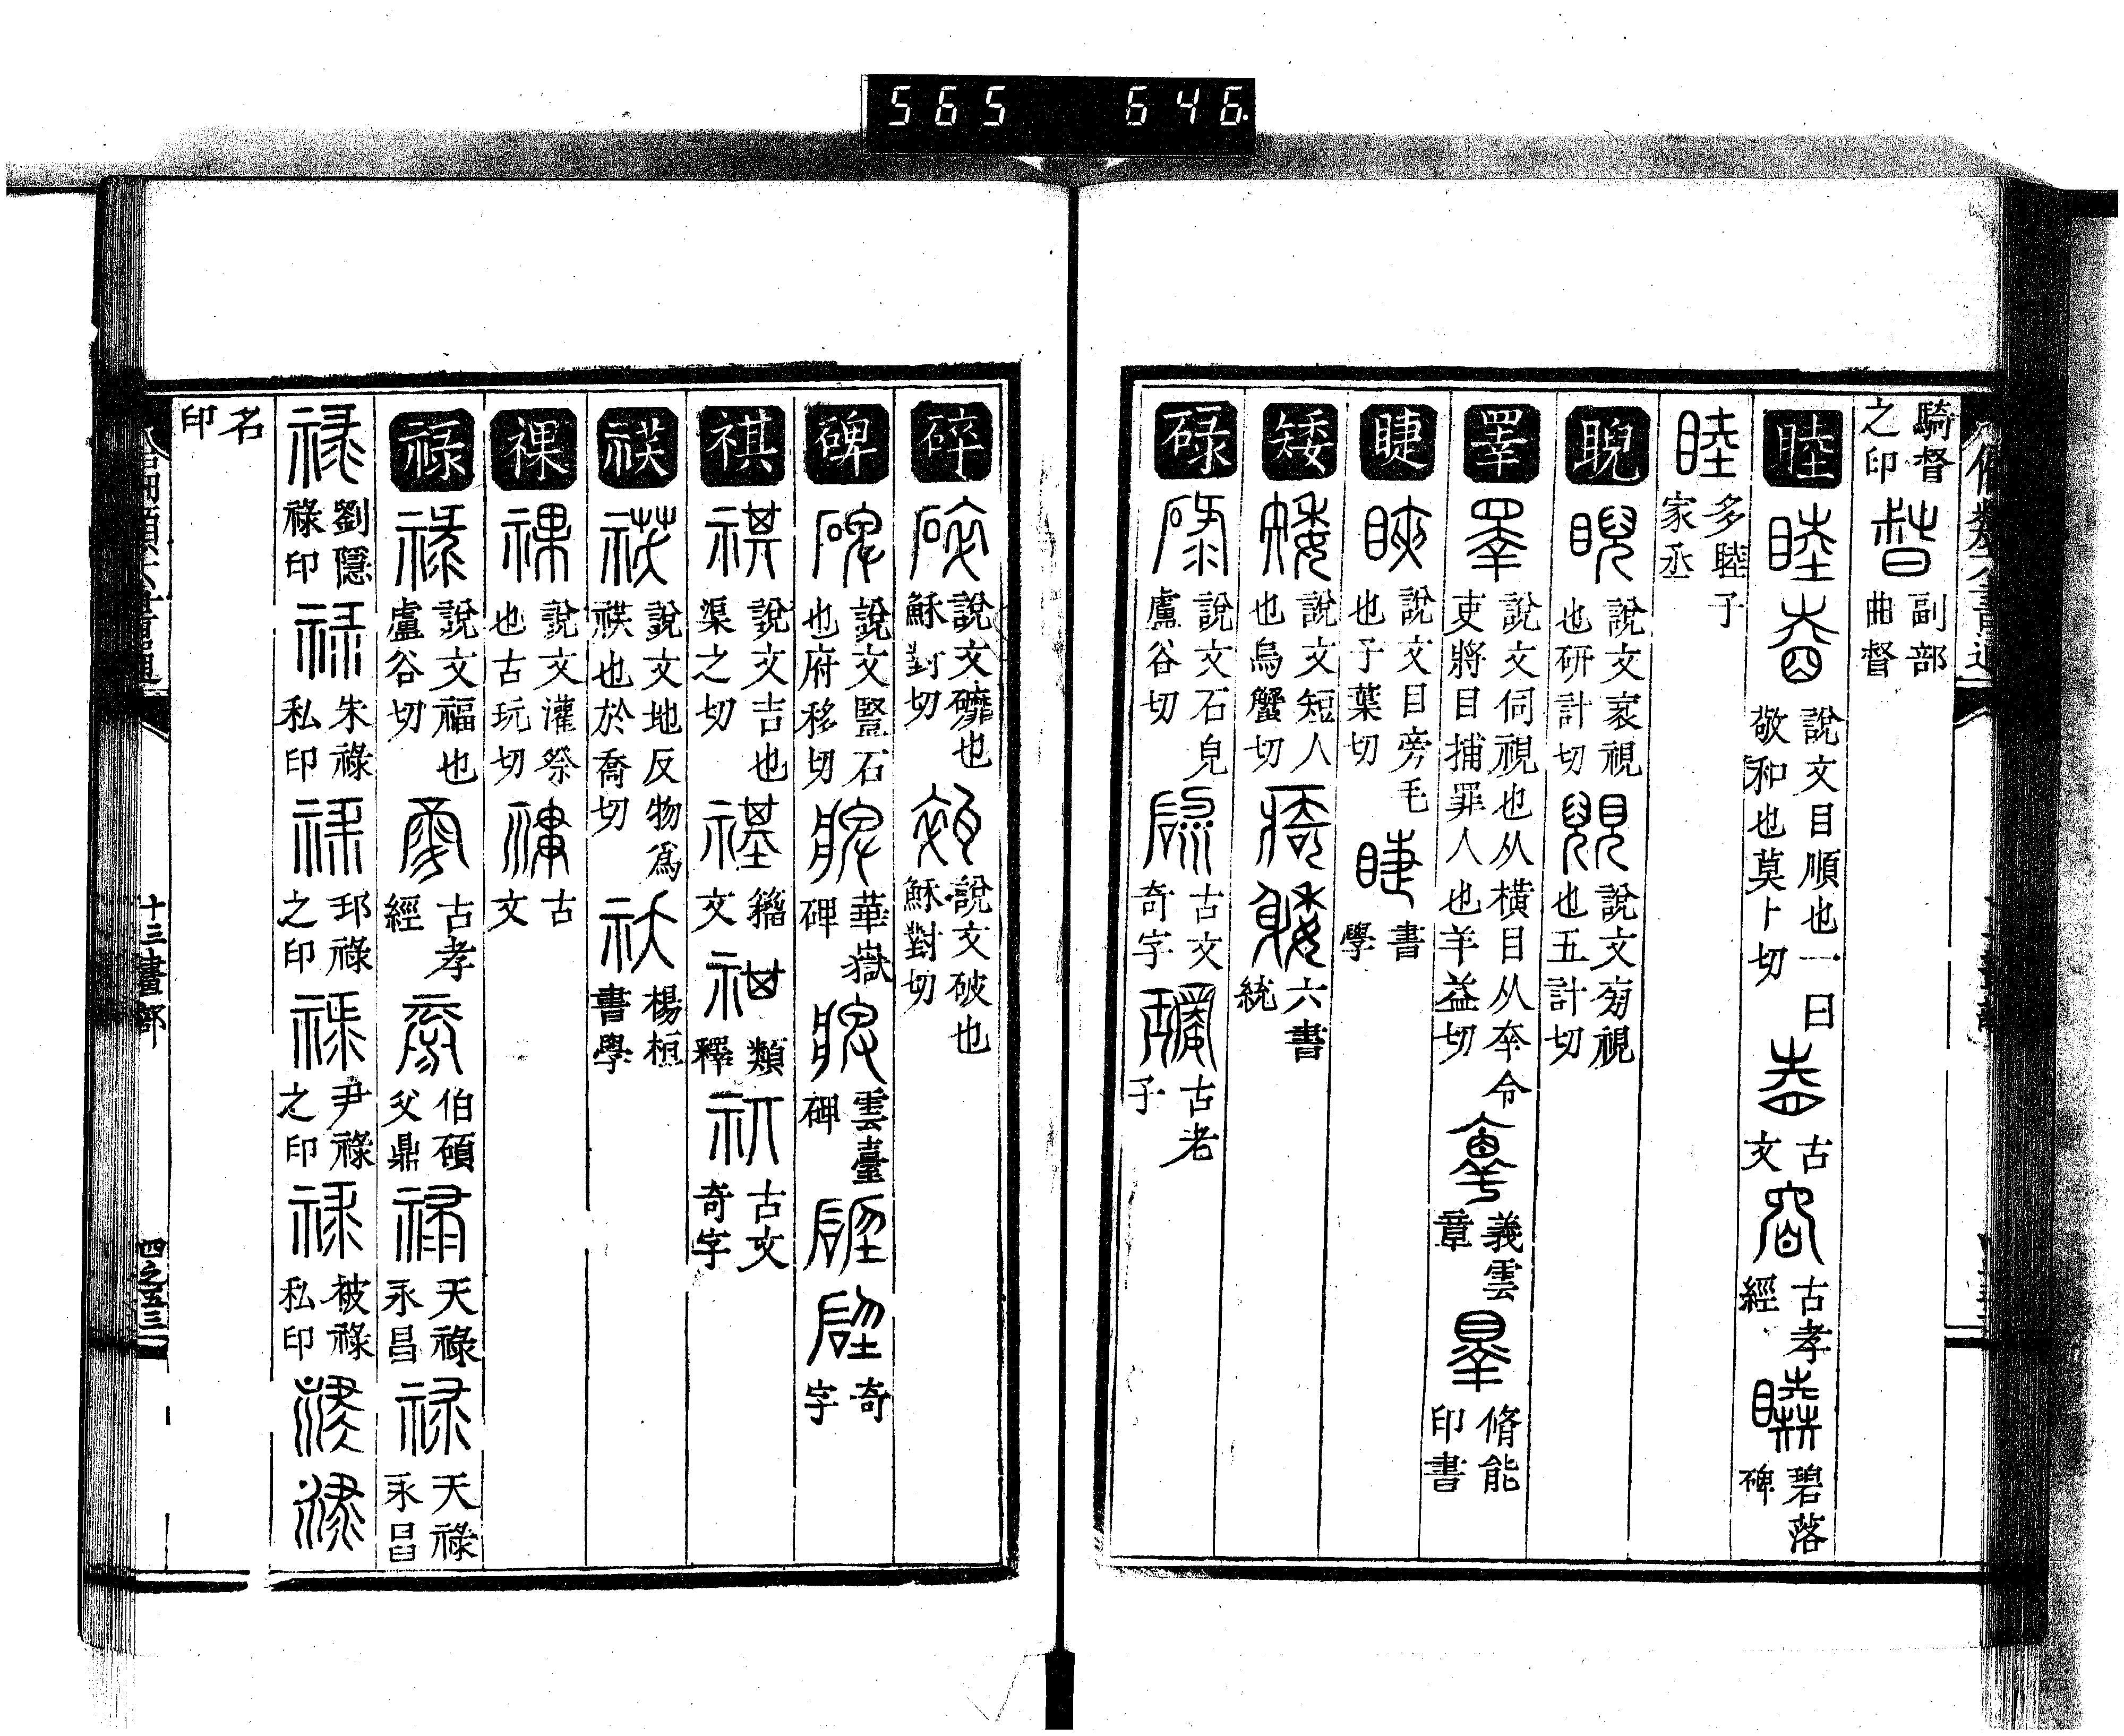 565 646.
騎督之印 副部曲督
睦 說文目順也一曰敬和也莫卜切 古文 古孝經 碧落碑
睦 多睦子家丞
睨 說文衺視也研計切 說文旁視也五計切
睪 說文伺視也从橫目从㚔令吏將目捕罪人也羊益切 義雲章 脩能印書
睫 說文目旁毛也子葉切 書學
矮 說文短人也烏蟹切 六書統
碌 說文石皃盧谷切 古文奇字 古老子
碎 說文䃺也穌對切 說文破也穌對切
碑 說文豎石也府移切 華嶽碑 雲臺碑 奇字
祺 說文吉也渠之切 籀文 類釋 古文奇字
祅 說文地反物爲祅也於喬切 楊桓書學
祼 說文灌祭也古玩切 古文
祿 說文福也盧谷切 古孝經 伯碩父鼎 天祿永昌 天祿永昌
祿 劉隱祿印 朱祿私印 邳祿之印 尹祿之印 被祿私印
名印
十三畫部
四之五三